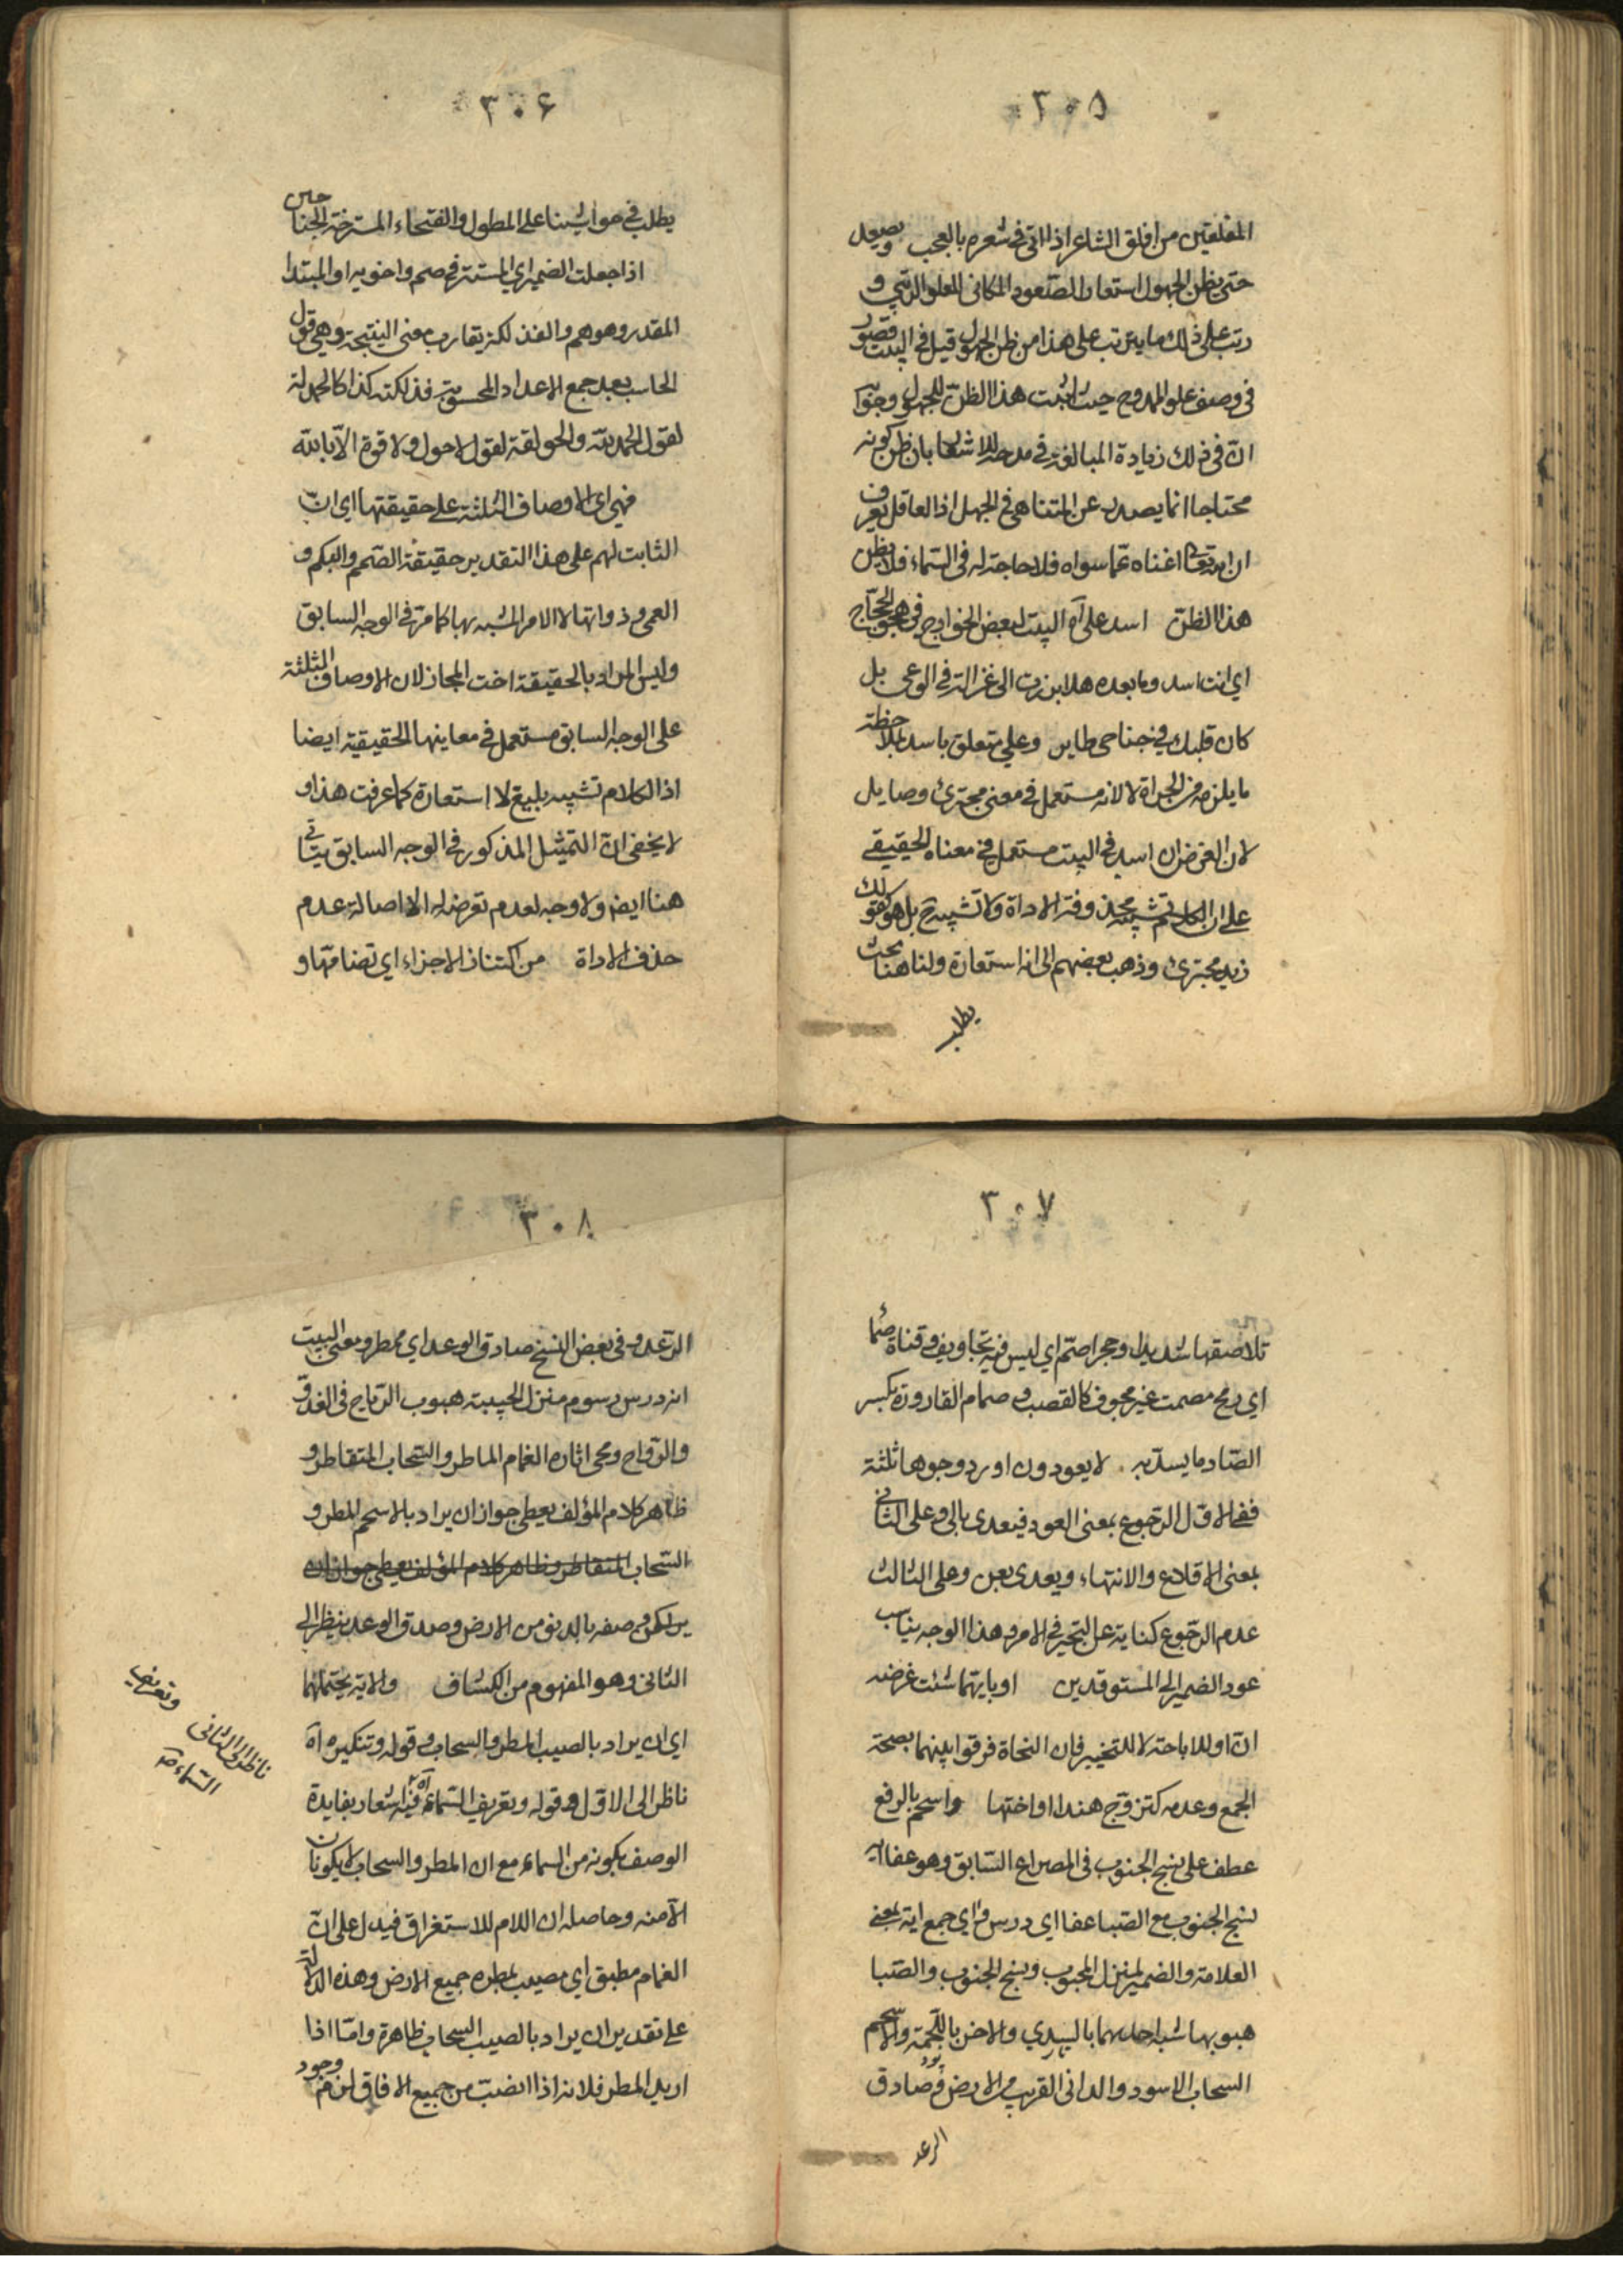 ٣٠٥
المفلقين من افلق الشاعر اذا اتى في شعره بالعجب ويصعد
حتى يظن الجهول استعار الصعود المكاني للعلو الرتبي و
رتب على ذلك ما يترتب على هذا من ظن الجهول قيل في البيت قصور
في وصف علو الممدوح حيث اثبت هذا الظن للجهول وجوابه
ان في ذلك زيادة المبالغة في مدحه للاشعار بان ظن كونه
محتاجا انما يصدر عن المتناهي في الجهل اذ العاقل يعرف
ان الله تعالى اغناه عما سواه فلا حاجة له في السماء فلا يظن
هذا الظن اسد علي آه البيت لبعض الخوارج في هجو الحجاج
اي انت اسد وما بعده هلا برزت الى غزالة في الوعى بل
كان قلبك في جناحى طاير وعلي متعلق باسد بملاحظة
ما يلزمه من الجراة لا لانه مستعمل في معنى مجترئ وصايل
لان الغرض ان اسد في البيت مستعمل في معناه الحقيقي
على ان الكلام تشبيه محذوفة الاداة ولا تشبيه ح بل هو كقولك
زيد مجترئ وذهب بعضهم الى انه استعارة ولنا هنا بحث
يطلب
٣٠٦
يطلب في حواشينا على المطول والفتخاء المسترخية الجناحين
اذا جعلت الضمير اي المستتر في صم واخويه او المبتدا
المقدر وهو هم والفذلكة يقارب معنى النتيجة وهي قول
الحاسب بعد جمع الاعداد المحسوبة فذلكته كذا كالحمدلة
لقول الحمد لله والحولقة لقول لا حول ولا قوة الا بالله
فهي اى الاوصاف الثلثة على حقيقتها اي ان
الثابت لهم على هذا التقدير حقيقة الصمم والبكم و
العمى وذواتها لا الامر المشبه بها كما مر في الوجه السابق
وليس المراد بالحقيقة اخت المجاز لان الاوصاف الثلثة
على الوجه السابق مستعمل في معاينها الحقيقية ايضا
اذ الكلام تشبيه بليغ لا استعارة كما عرفت هذا و
لا يخفى ان التمثيل المذكور في الوجه السابق يتاتى
هنا ايضا ولا وجه لعدم تعرضه له الا اصالة عدم
حذف الاداة من اكتناز الاجزاء اي تضامها و
٣٠٧
تلاصقها شديدا وحجر اصم اي ليس فيه تجاويف وقناة صماء
اي رمح مصمت غير مجوف كالقصب وصمام القارورة بكسر
الصاد ما يسد به لا يعودون اورد وجوها ثلثة
ففي الاول الرجوع بمعنى العود فيعدى بالى وعلى الثاني
بمعنى الاقلاع والانتهاء ويعدى بعن وعلى الثالث
عدم الرجوع كناية عن التحير في الامر وهذا الوجه يناسب
عود الضمير الى المستوقدين او بايتهما شئت غرضه
ان او للاباحة لا للتخيير فان النحاة فرقوا بينهما بصحة
الجمع وعدمه كتزوج هندا او اختها واسحم بالرفع
عطف على نسج الجنوب في المصراع السابق وهو عفا ايه
نسج الجنوب مع الصبا عفا اي درس واي جمع اية بمعنى
العلامة والضمير لمنزل المحبوب ونسج الجنوب والصبا
هبوبهما شبه احدهما بالسدي والاخر باللحمة والاسحم
السحاب الاسود والداني القريب من الارض وصادق
الرعد
٣٠٨
الرعد وفي بعض النسخ صادق الوعد اي ممطر ومعنى البيت
انه درس رسوم منزل الحبيبة هبوب الرياح في الغدو
والرواح ومحى اثاره الغمام الماطر والسحاب المتقاطر و
ظاهر كلام المؤلف يعطي جواز ان يراد بالاسحم المطر و
السحاب المتقاطر وظاهر كلام المؤلف يعطي جواز ان
لكن وصفه بالدنو من الارض وصدق الوعد ينظر الى
الثاني وهو المفهوم من الكشاف والاية يحتملهما
اي ان يراد بالصيب المطر والسحاب وقوله وتنكيره اه
ناظر الى الاول وقوله وتعريف السماء آه فيه اشعار بفايدة
الوصف بكونه من السماء مع ان المطر والسحاب لا يكونان
الا منه وحاصله ان اللام للاستغراق فيدل على ان
الغمام مطبق اي مصيب بمطره جميع الارض وهذه الدلالة
على تقدير ان يراد بالصيب السحاب ظاهرة واما اذا
اريد المطر فلانه اذا انصب من جميع الافاق لزم وجود
وتعريف
ناظر الى الثاني
السماء